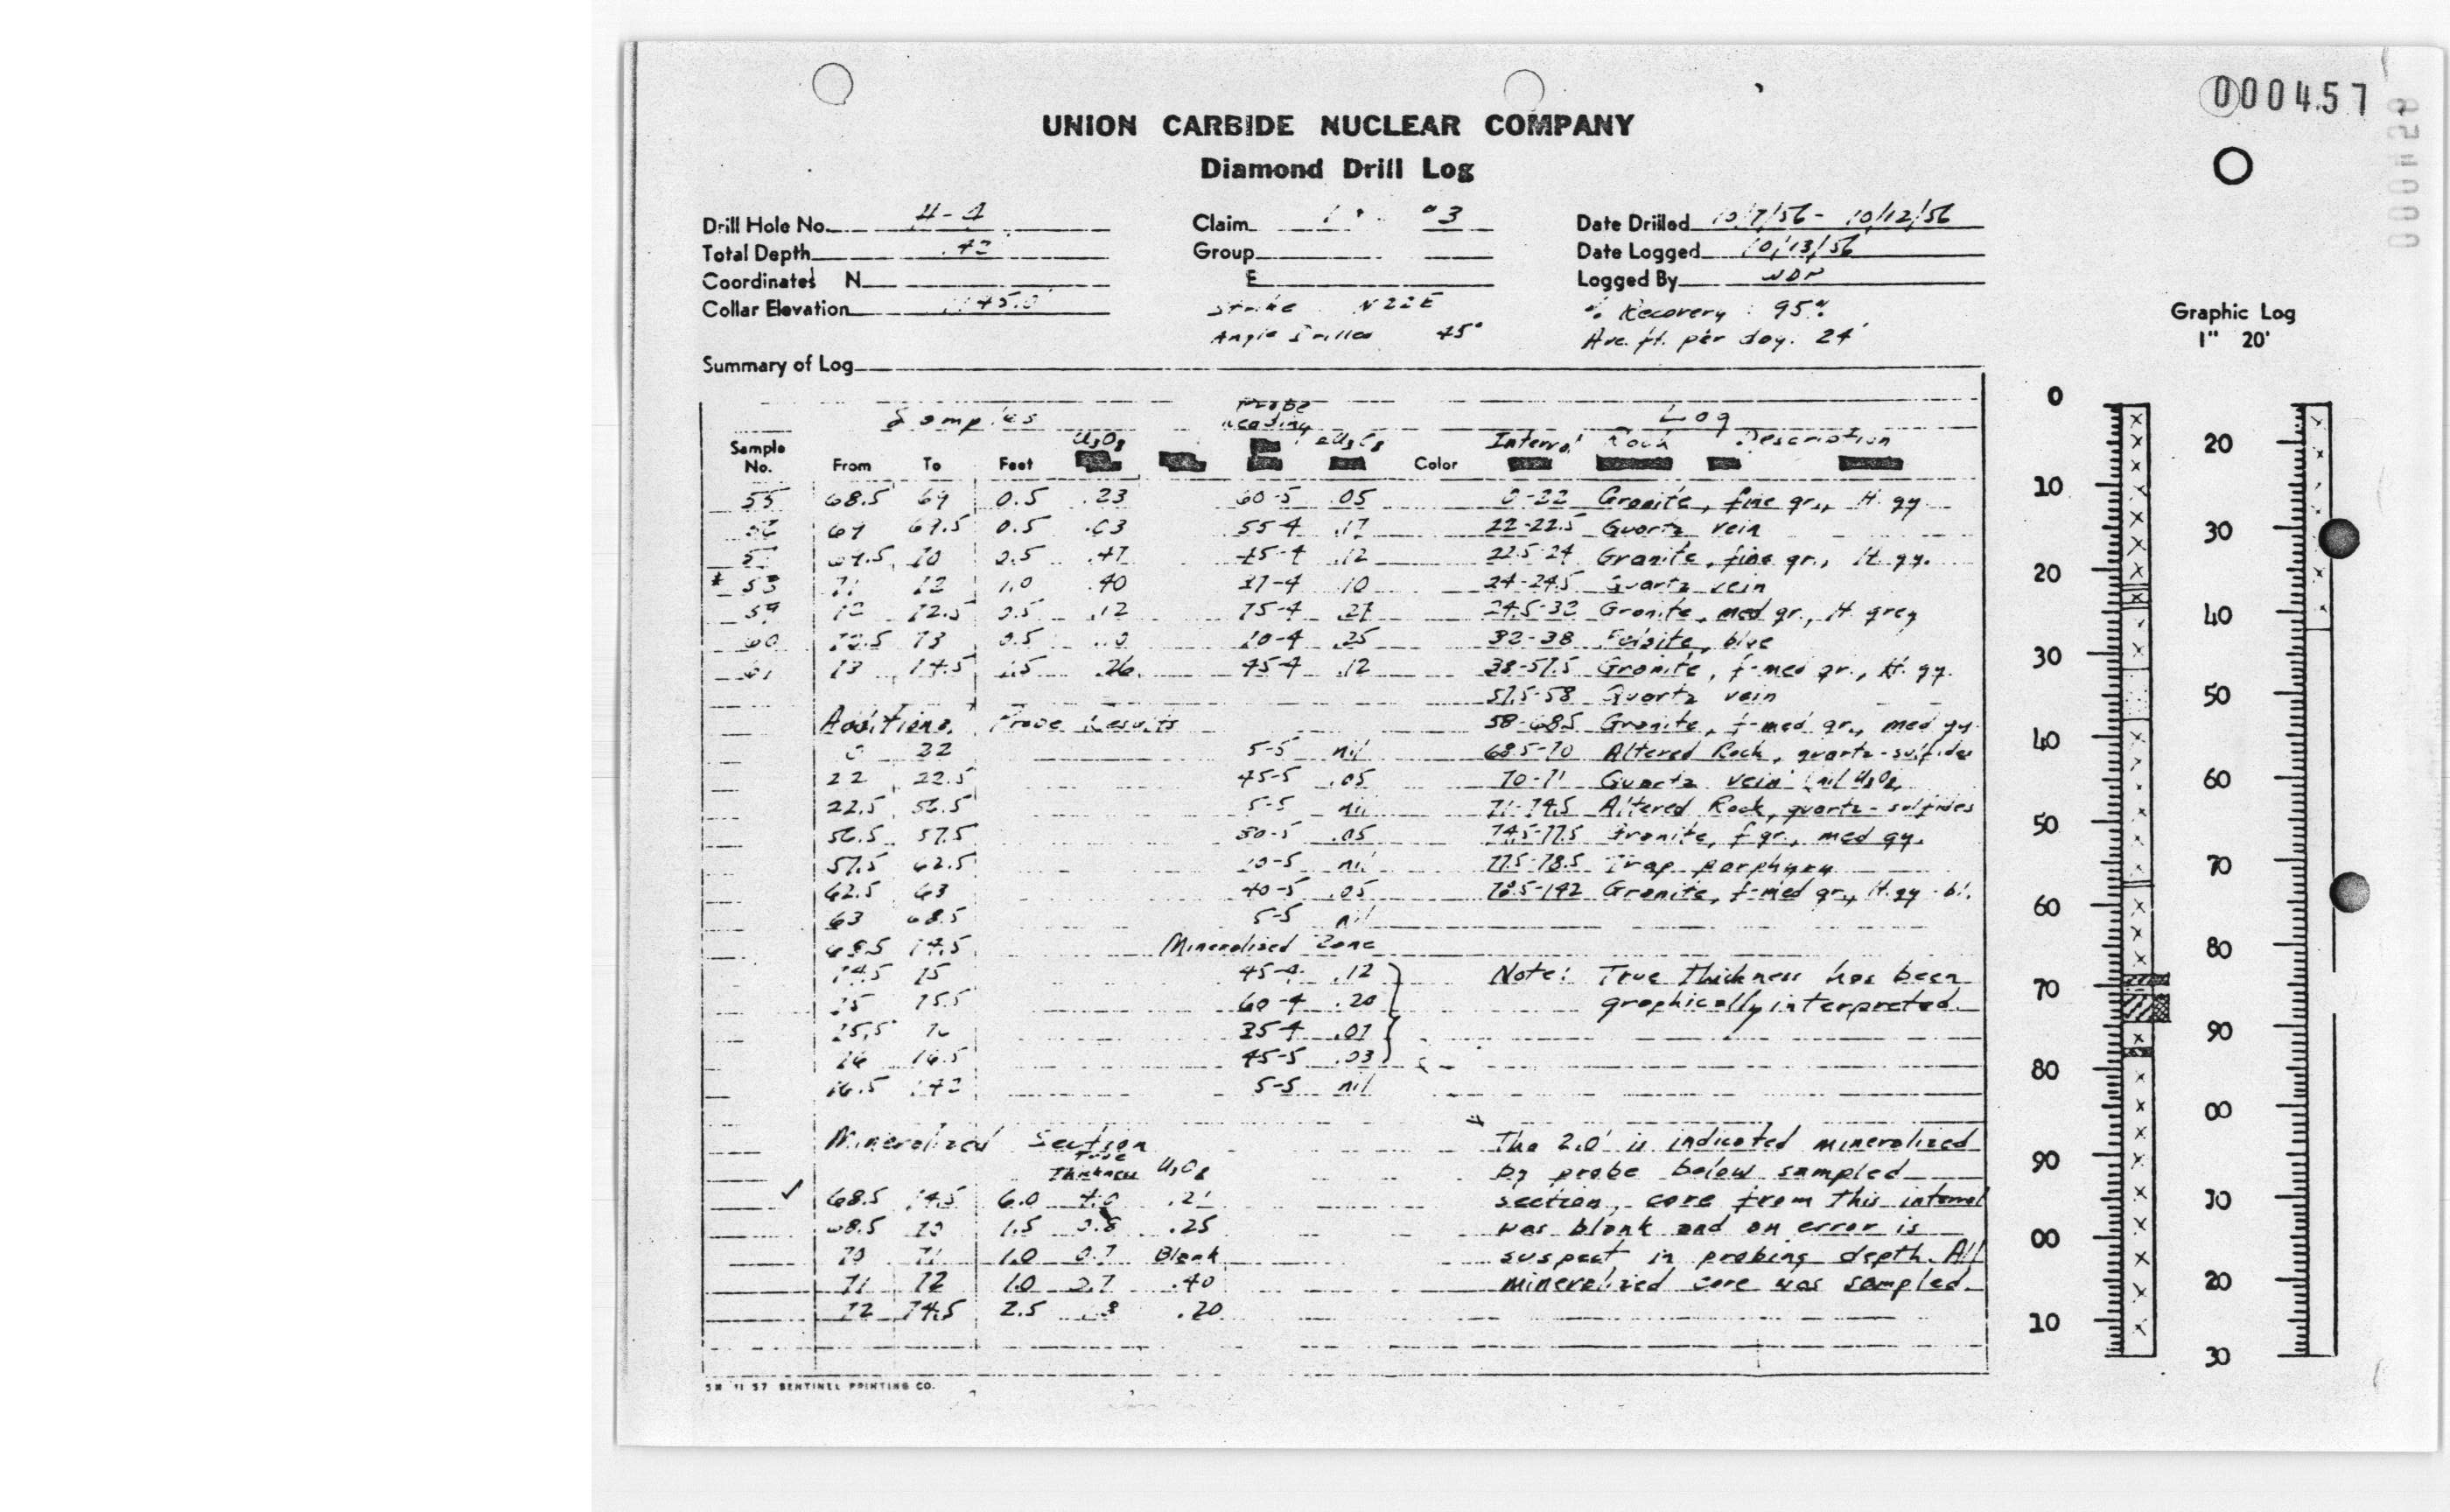 000457
UNION CARBIDE NUCLEAR COMPANY
Diamond Drill Log
Drill Hole No. Claim "3 Date Drilled 10/7/56 - 10/12/56
Total Depth Group Date Logged 10/13/56
Coordinates N E Logged By
Collar Elevation Strike N22E % Recovery : 95%
Angle Drilled 45° Ave. ft. per day. 24'
Graphic Log
1" 20'
Summary of Log
Samples Probe Reading Log
Sample No. From To Feet U3O8 eU3O8 Color Interval Rock Description
55 68.5 69 0.5 .23 60-5 .05 0-22 Granite, fine gr., lt. gy.
69 69.5 0.5 .03 55-4 .17 22-22.5 Quartz vein
69.5 70 0.5 .47 45-4 .12 22.5-24 Granite, fine gr., lt. gy.
* 58 71 72 1.0 .40 37-4 .10 24-24.5 Quartz vein
59 72 72.5 0.5 .12 75-4 .27 24.5-32 Granite, med gr., lt. grey
60 72.5 73 0.5 .25 32-38 Felsite, blue
61 73 74.5 1.5 .26 45-4 .12 38-57.5 Granite, f-med gr., lt. gy.
57.5-58 Quartz vein
Additional Probe Results 58-68.5 Granite, f-med gr., med gy.
0 22 5-5 nil 68.5-70 Altered Rock, quartz-sulfides
22 22.5 45-5 .05 70-71 Quartz vein (nil U3O8)
22.5 56.5 5-5 nil 71-74.5 Altered Rock, quartz-sulfides
56.5 57.5 .05 74.5-77.5 Granite, f gr., med gy.
57.5 62.5 10-5 nil 77.5-78.5 Trap porphyry
62.5 63 40-5 .05 78.5-142 Granite, f-med gr., lt. gy - bl.
63 68.5 5-5 nil
68.5 74.5 Mineralized Zone
74.5 75 45-4 .12 Note: True thickness has been
75 75.5 60-4 .20 graphically interpreted.
75.5 76 35-4
76 76.5 45-5 .03
76.5 142 5-5 nil
Mineralized Section * The 2.0' is indicated mineralized
True Thickness U3O8 by probe below sampled
✓ 68.5 74.5 6.0 4.0 section, core from this interval
68.5 70 1.5 0.8 .25 was blank and an error is
70 71 1.0 0.7 Blank suspect in probing depth. All
71 72 1.0 0.7 .40 mineralized core was sampled.
72 74.5 2.5 .20
5M 11 57 SENTINEL PRINTING CO.
0
10
20
30
40
50
60
70
80
90
00
10
20
30
40
50
60
70
80
90
00
10
20
30